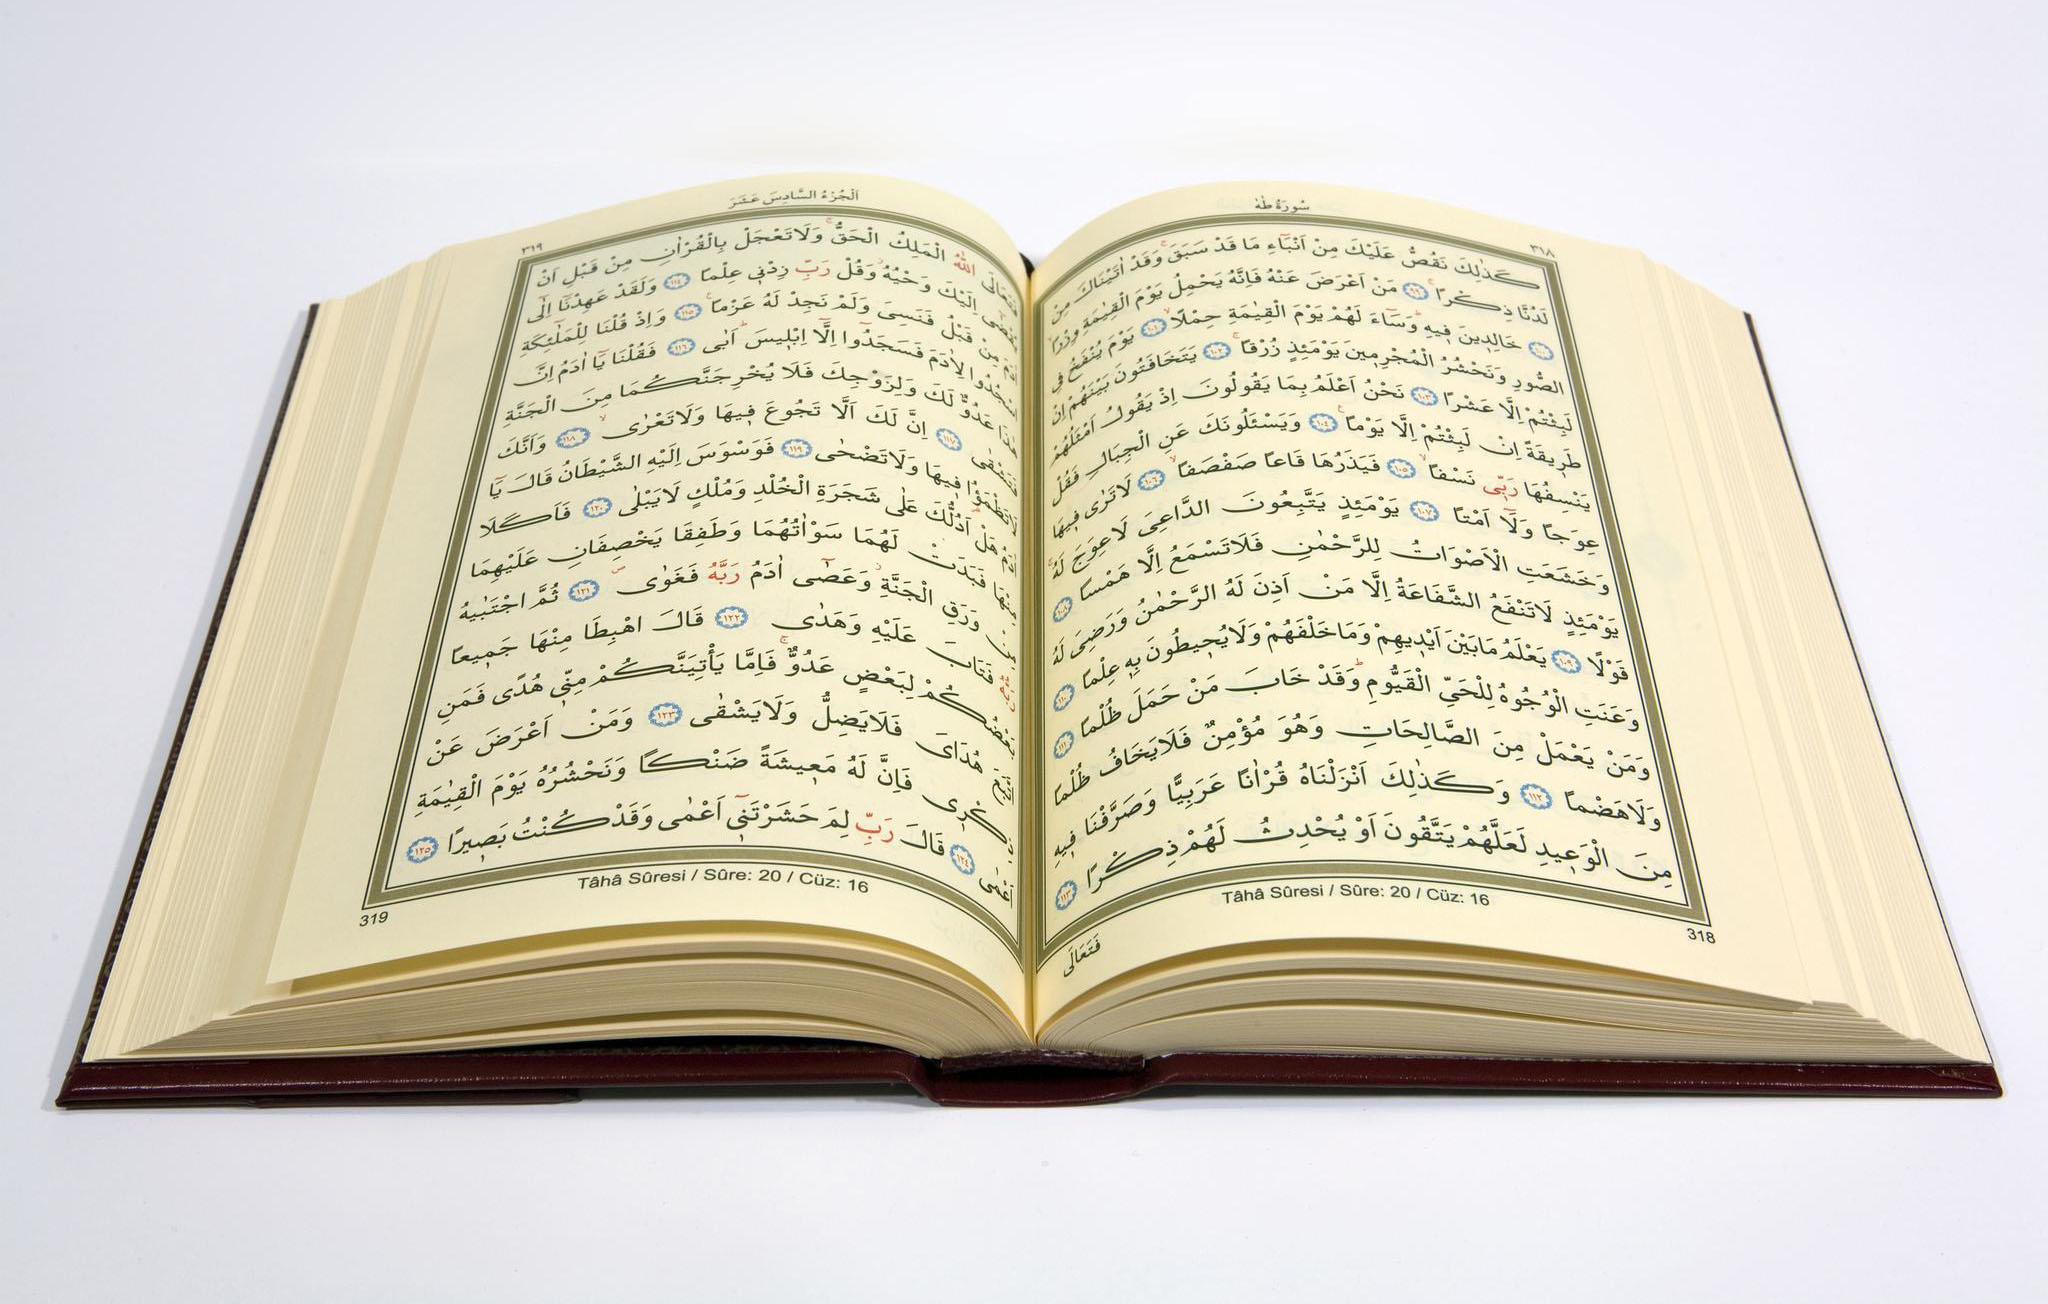 سُورَةُ طٰهٰ
٣١٨
كَذٰلِكَ نَقُصُّ عَلَيْكَ مِنْ اَنْبَٓاءِ مَا قَدْ سَبَقَۚ وَقَدْ اٰتَيْنَاكَ مِنْ
لَدُنَّا ذِكْرًاۚ ﴿٩٩﴾ مَنْ اَعْرَضَ عَنْهُ فَاِنَّهُ يَحْمِلُ يَوْمَ الْقِيٰمَةِ وِزْرًاۙ
﴿١٠٠﴾ خَالِد۪ينَ ف۪يهِۜ وَسَٓاءَ لَهُمْ يَوْمَ الْقِيٰمَةِ حِمْلًاۙ ﴿١٠١﴾ يَوْمَ يُنْفَخُ فِي
الصُّورِ وَنَحْشُرُ الْمُجْرِم۪ينَ يَوْمَئِذٍ زُرْقًاۚ ﴿١٠٢﴾ يَتَخَافَتُونَ بَيْنَهُمْ اِنْ
لَبِثْتُمْ اِلَّا عَشْرًا ﴿١٠٣﴾ نَحْنُ اَعْلَمُ بِمَا يَقُولُونَ اِذْ يَقُولُ اَمْثَلُهُمْ
طَر۪يقَةً اِنْ لَبِثْتُمْ اِلَّا يَوْمًاۚ ﴿١٠٤﴾ وَيَسْـَٔلُونَكَ عَنِ الْجِبَالِ فَقُلْ
يَنْسِفُهَا رَبّ۪ي نَسْفًاۙ ﴿١٠٥﴾ فَيَذَرُهَا قَاعًا صَفْصَفًاۙ ﴿١٠٦﴾ لَا تَرٰى ف۪يهَا
عِوَجًا وَلَٓا اَمْتًا ﴿١٠٧﴾ يَوْمَئِذٍ يَتَّبِعُونَ الدَّاعِيَ لَا عِوَجَ لَهُۚ
وَخَشَعَتِ الْاَصْوَاتُ لِلرَّحْمٰنِ فَلَا تَسْمَعُ اِلَّا هَمْسًا ﴿١٠٨﴾
يَوْمَئِذٍ لَا تَنْفَعُ الشَّفَاعَةُ اِلَّا مَنْ اَذِنَ لَهُ الرَّحْمٰنُ وَرَضِيَ لَهُ
قَوْلًا ﴿١٠٩﴾ يَعْلَمُ مَا بَيْنَ اَيْد۪يهِمْ وَمَا خَلْفَهُمْ وَلَا يُح۪يطُونَ بِه۪ عِلْمًا ﴿١١٠﴾
وَعَنَتِ الْوُجُوهُ لِلْحَيِّ الْقَيُّومِۜ وَقَدْ خَابَ مَنْ حَمَلَ ظُلْمًا ﴿١١١﴾
وَمَنْ يَعْمَلْ مِنَ الصَّالِحَاتِ وَهُوَ مُؤْمِنٌ فَلَا يَخَافُ ظُلْمًا
وَلَا هَضْمًا ﴿١١٢﴾ وَكَذٰلِكَ اَنْزَلْنَاهُ قُرْاٰنًا عَرَبِيًّا وَصَرَّفْنَا ف۪يهِ
مِنَ الْوَع۪يدِ لَعَلَّهُمْ يَتَّقُونَ اَوْ يُحْدِثُ لَهُمْ ذِكْرًا ﴿١١٣﴾
Tâhâ Sûresi / Sûre: 20 / Cüz: 16
318
فَتَعَالَى
اَلْجُزْءُ السَّادِسَ عَشَرَ
٣١٩
فَتَعَالَى اللّٰهُ الْمَلِكُ الْحَقُّۚ وَلَا تَعْجَلْ بِالْقُرْاٰنِ مِنْ قَبْلِ اَنْ
يُقْضٰٓى اِلَيْكَ وَحْيُهُۘ وَقُلْ رَبِّ زِدْن۪ي عِلْمًا ﴿١١٤﴾ وَلَقَدْ عَهِدْنَٓا اِلٰٓى
اٰدَمَ مِنْ قَبْلُ فَنَسِيَ وَلَمْ نَجِدْ لَهُ عَزْمًا۟ ﴿١١٥﴾ وَاِذْ قُلْنَا لِلْمَلٰٓئِكَةِ
اسْجُدُوا لِاٰدَمَ فَسَجَدُٓوا اِلَّٓا اِبْل۪يسَۜ اَبٰى ﴿١١٦﴾ فَقُلْنَا يَٓا اٰدَمُ اِنَّ
هٰذَا عَدُوٌّ لَكَ وَلِزَوْجِكَ فَلَا يُخْرِجَنَّكُمَا مِنَ الْجَنَّةِ
فَتَشْقٰى ﴿١١٧﴾ اِنَّ لَكَ اَلَّا تَجُوعَ ف۪يهَا وَلَا تَعْرٰىۙ ﴿١١٨﴾ وَاَنَّكَ
لَا تَظْمَؤُ۬ا ف۪يهَا وَلَا تَضْحٰى ﴿١١٩﴾ فَوَسْوَسَ اِلَيْهِ الشَّيْطَانُ قَالَ يَٓا
اٰدَمُ هَلْ اَدُلُّكَ عَلٰى شَجَرَةِ الْخُلْدِ وَمُلْكٍ لَا يَبْلٰى ﴿١٢٠﴾ فَاَكَلَا
مِنْهَا فَبَدَتْ لَهُمَا سَوْاٰتُهُمَا وَطَفِقَا يَخْصِفَانِ عَلَيْهِمَا
مِنْ وَرَقِ الْجَنَّةِۘ وَعَصٰٓى اٰدَمُ رَبَّهُ فَغَوٰىۖ ﴿١٢١﴾ ثُمَّ اجْتَبٰيهُ
رَبُّهُ فَتَابَ عَلَيْهِ وَهَدٰى ﴿١٢٢﴾ قَالَ اهْبِطَا مِنْهَا جَم۪يعًا
بَعْضُكُمْ لِبَعْضٍ عَدُوٌّۚ فَاِمَّا يَأْتِيَنَّكُمْ مِنّ۪ي هُدًى فَمَنِ
اتَّبَعَ هُدَايَ فَلَا يَضِلُّ وَلَا يَشْقٰى ﴿١٢٣﴾ وَمَنْ اَعْرَضَ عَنْ
ذِكْر۪ي فَاِنَّ لَهُ مَع۪يشَةً ضَنْكًا وَنَحْشُرُهُ يَوْمَ الْقِيٰمَةِ
اَعْمٰى ﴿١٢٤﴾ قَالَ رَبِّ لِمَ حَشَرْتَن۪ٓي اَعْمٰى وَقَدْ كُنْتُ بَص۪يرًا ﴿١٢٥﴾
Tâhâ Sûresi / Sûre: 20 / Cüz: 16
319